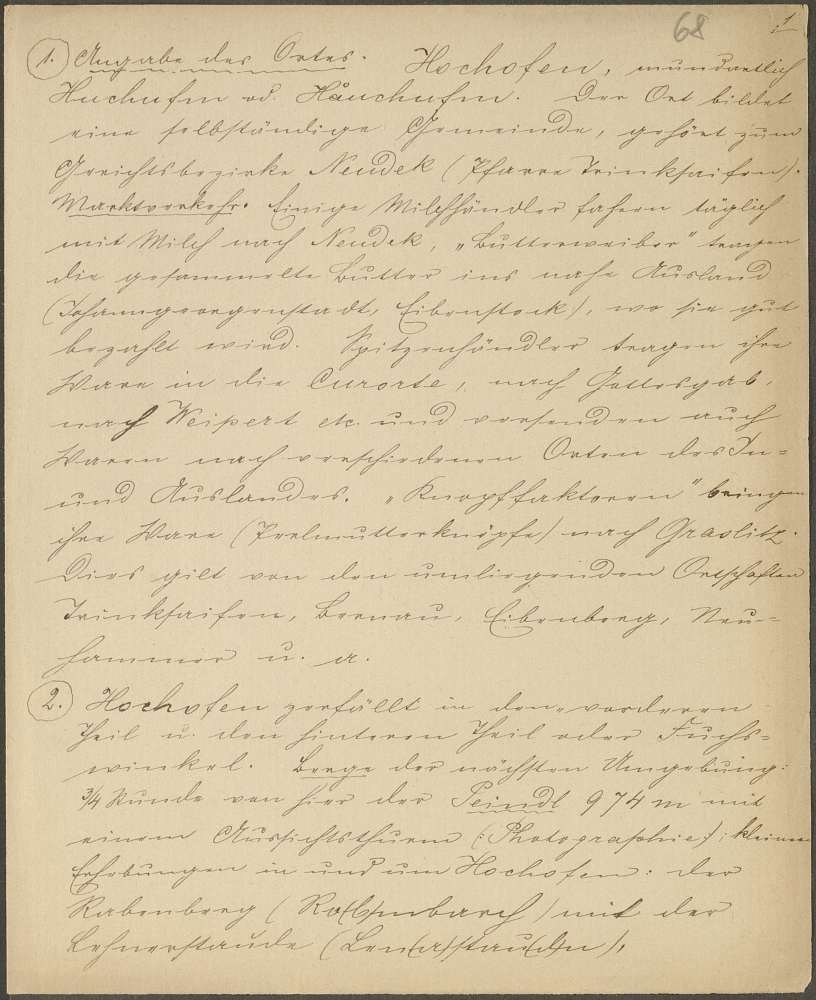 68 1
1. Angabe des Ortes. Hochofen, mundartlich
Huchufm od. Håuchufm. Der Ort bildet
eine selbständige Gemeinde, gehört zum
Gerichtsbezirke Neudek (Pfarre Trinksaifen).
Marktverkehr. Einige Milchhändler fahren täglich
mit Milch nach Neudek, „Butterweiber" tragen
die gesammelte Butter ins nahe Ausland
(Johanngeorgenstadt, Eibenstock), wo sie gut
bezahlt wird. Spitzenhändler tragen ihre
Ware in die Curorte, nach Gottesgab,
nach Weipert etc. und versenden auch
Waren nach verschiedenen Orten des In-
und Auslandes. „Knopffaktoren" bringen
ihre Ware (Perlmutterknöpfe) nach Graslitz.
Dies gilt von den umliegenden Ortschaften
Trinksaifen, Bernau, Eibenberg, Neu-
hammer u. a.
2. Hochofen zerfällt in den vorderen
Theil u. den hinteren Theil oder Fuchs-
winkel. Berge der nächsten Umgebung:
3/4 Stunde von hier der Peindl 974 m mit
einem Aussichtsthurm (: Photographie); kleinere
Erhebungen in und um Hochofen: der
Rabenberg (Ro(b)mbarch) mit der
Lehnerstaude (Len(a)stau(d)n),